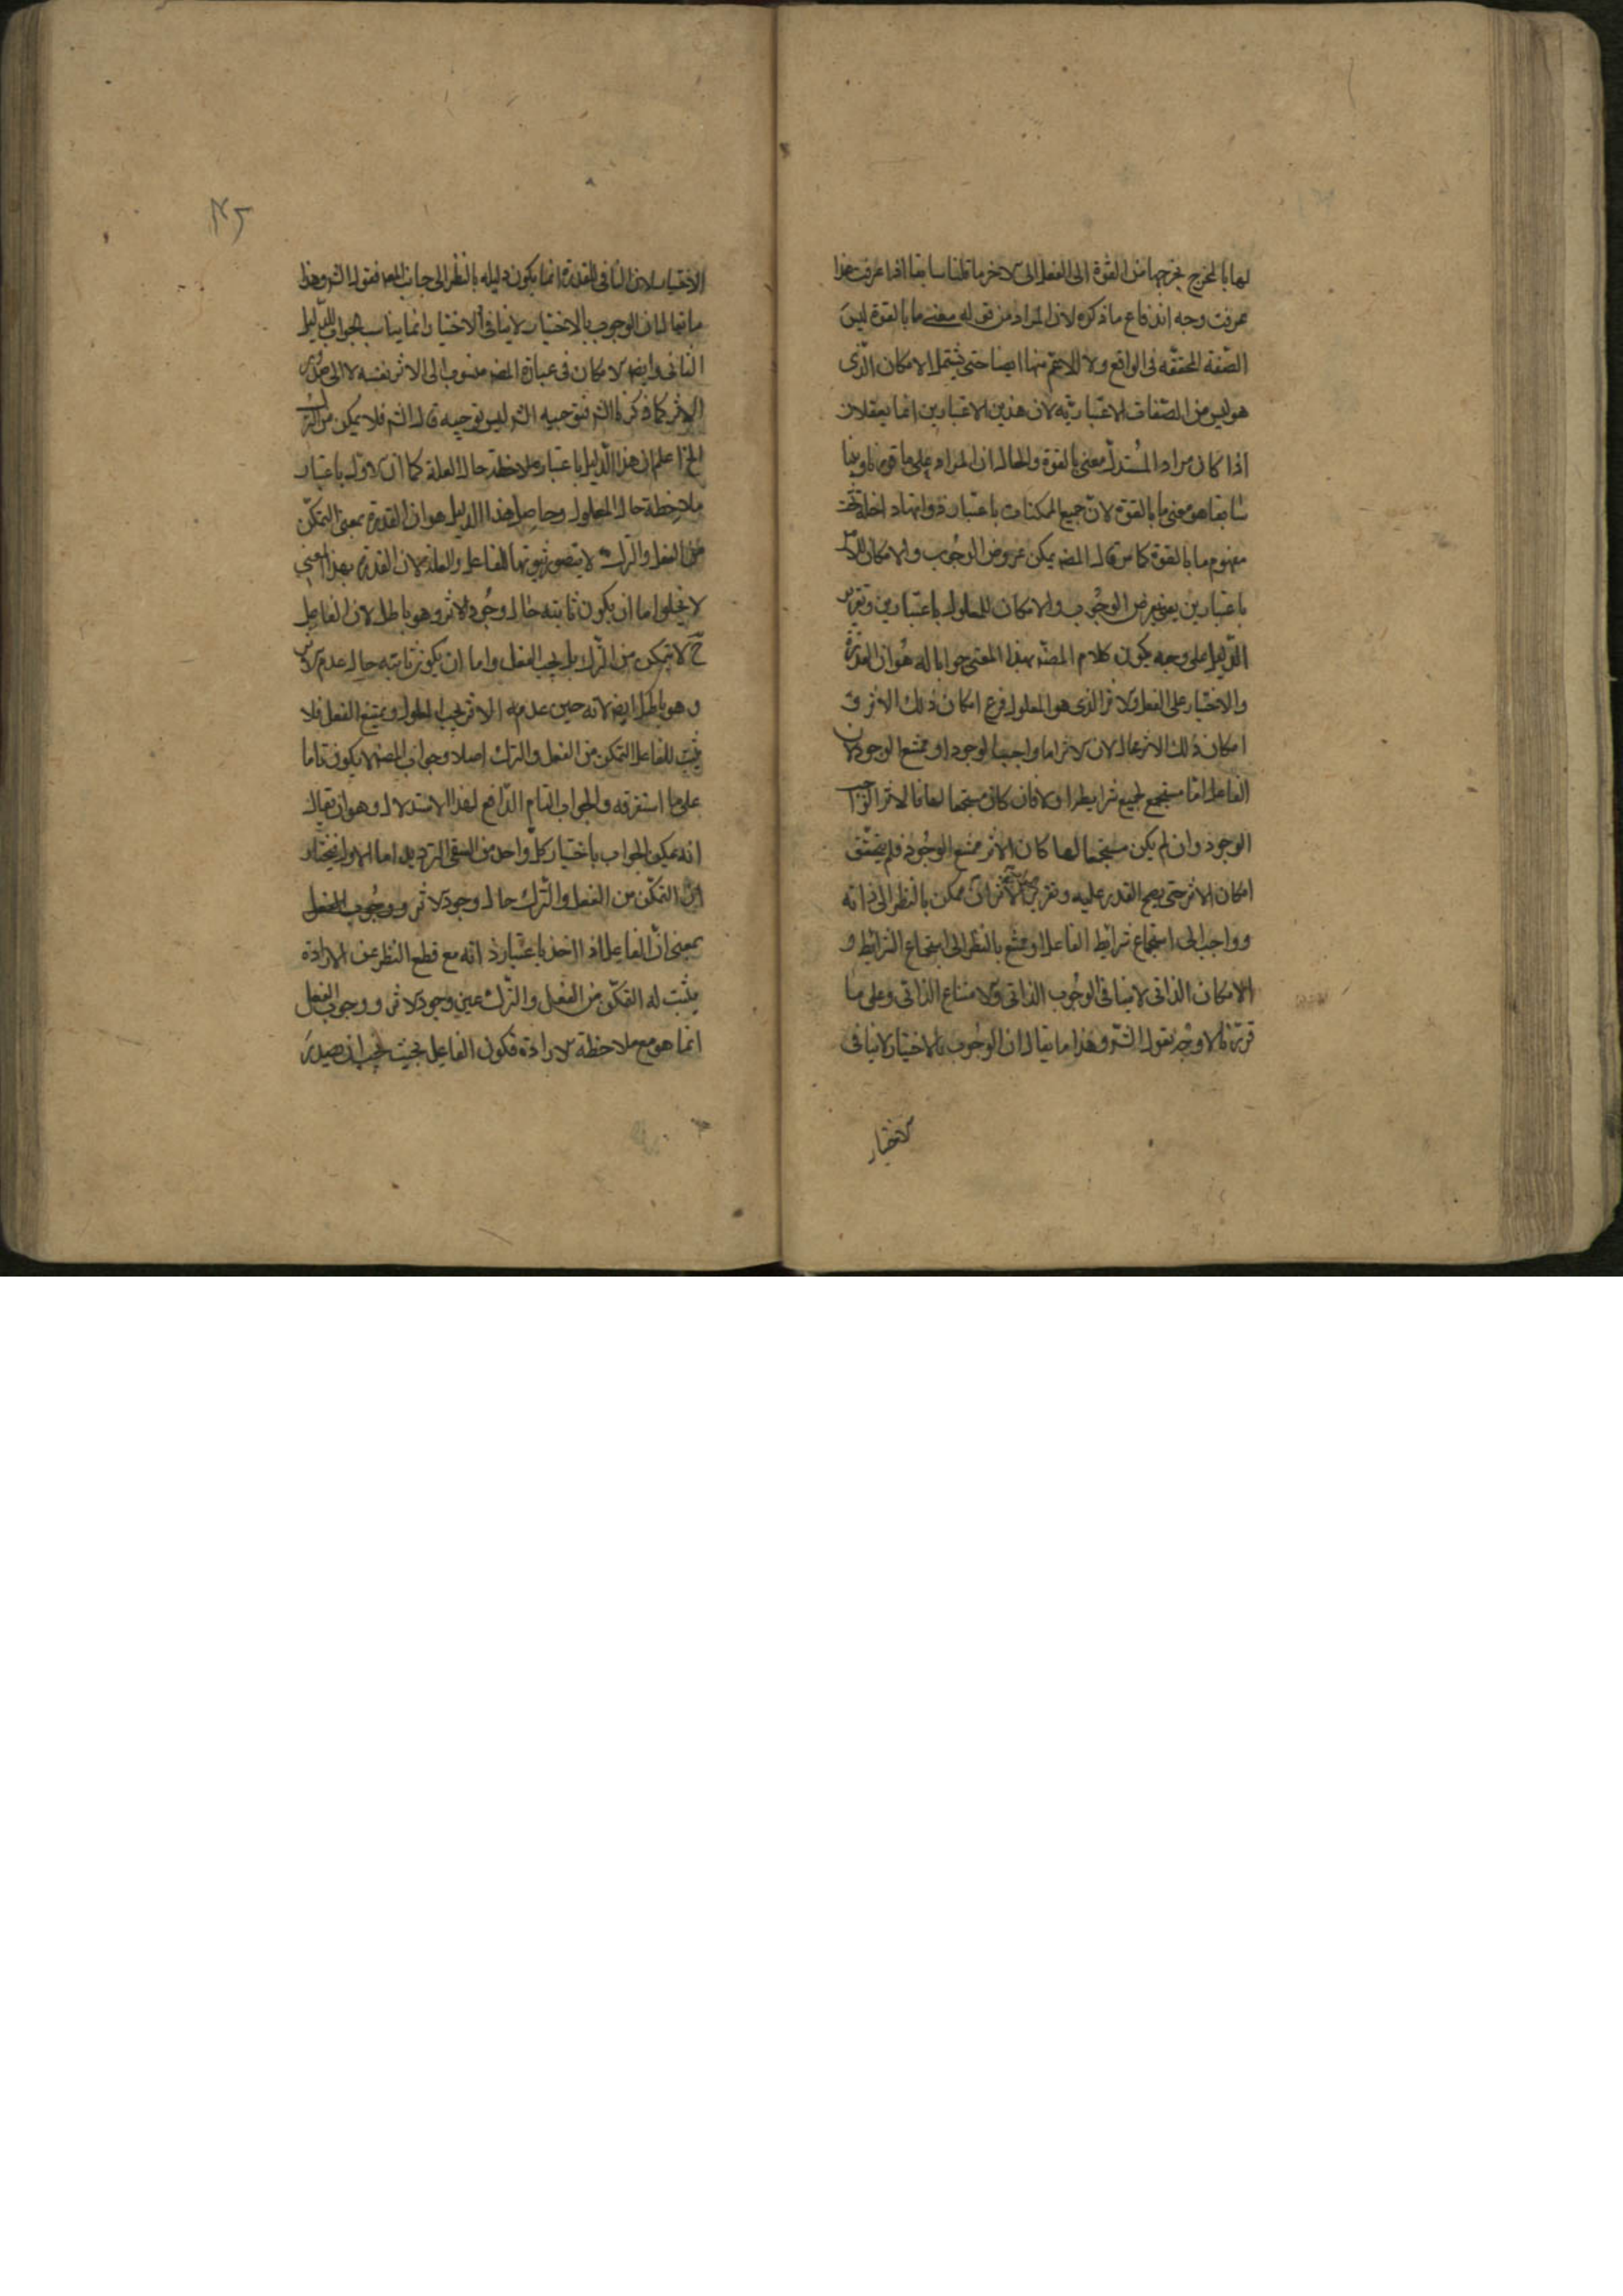 لها بالمخرج يخرجها من القوة الى الفعل الى الاخر ما قلنا سابقا اذا عرفت هذا
عرفت وجه اندفاع ما ذكره لان المراد من قوله معنى ما بالقوة ليس
الصّفة المحققه فى الواقع ولا الاعمّ منها ايضا حتى يشتمل الامكان الّذى
هو ليس من الصّفات الاعتباريّه لان هذين الاعتبارين انما يعقلان
اذا كان مراد المُستدلّ معنى بالقوة والحال ان المراد على ما
سابقا هو معنى ما بالقوة لانّ جميع الممكنات باعتبار ذواتها داخلة تحت
مفهوم ما بالقوة كما مر قال المصه يمكن عروض الوجُوب والامكان للاثر
باعتبارين يعنى يعرض الوجُوب والامكان للمعلول باعتبارين وتقرير
الدّليل على وجه يكون كلام المصّه بهذا المعنى جوابا له هُو ان القدرة
والاختيار على الفعل والاثر الذى هو المعلول فرع امكان ذلك الاثر و
امكان ذلك الاثر محال لان الاثر اما واجب الوجود او ممتنع الوجود لان
الفاعل امّا مستجمع لجميع شرايطه او لا فان كان مستجمعا لها فالاثر واجب
الوجود وان لم يكن مستجمعا لها كان الاثر ممتنع الوجُود فلم يتحقّق
امكان الاثر حتى يصح القدرة عليه وتقرير الاثر ممكن بالنظر الى ذاته
وواجب الى استجماع شرائط الفاعل او ممتنع بالنظر الى استجماع الشرائط و
الامكان الذاتى لا ينافى الوجُوب الذاتى والامتناع الذاتى وعلى ما
قررنا لا وجُه لقول الشّه وهذا ما يقال ان الوجُوب بالاختيار لا ينافى
الاختيار
١٢٥
الاختيار لان المنافى للقدرة انما يكون دليله بالنظر الى جانب فقول الشه وهذا
ما يقال ان الوجوب بالاختيار لا ينافى الاختيار انما يناسب الجواب للدّليل
الثانى وايضه الامكان فى عبارة المصه منسوب الى الاثر نفسه لا الى صدُور
الاثر كما ذكره الشه فتوجيه الشه ليس بتوجيه قال الشه فلا يمكن من الترك
الخ اعلم ان هذا الدّليل باعتبار ملاحظة حال العلة كما ان الاوّل باعتبار
ملاحظة حال المعلول وحاصل هذا الدليل هو ان القدرة بمعنى التمكّن
من الفعل والترك لا يتصور ثبوتها للفاعل والعلة لان القدرة بهذا المعنى
لا يخلوا اما ان يكون ثابته حال وجُود الاثر وهو باطل لان الفاعل
ح لا يتمكن من الترك بل يجب الفعل واما ان يكون ثابته حال عدم الاثر
وهو باطل ايضه لانه حين عدمه الاثر يجب ويمتنع الفعل فلا
يثبت للفاعل التمكن من الفعل والترك اصلا وجواب المصه لا يكون تاما
على ما استعرفه والجواب التام الدّافع لهذا الاستدلال وهو ان يقال
انه يمكن الجواب باختيار كلّ واحد من الشقى الترديد اما الاول فيختار
انّ التمكّن من الفعل والتّرك حال وجود الاثر ووجُوب الفعل
بمعنى انّ الفاعل اذا اخذ باعتبار ذاته مع قطع النظر عن الارادة
يثبت له التمكّن من الفعل والتّرك عين وجود الاثر ووجوب الفعل
انما هو مع ملاحظة الارادة فكون الفاعل بحيث يجب ان يصدر